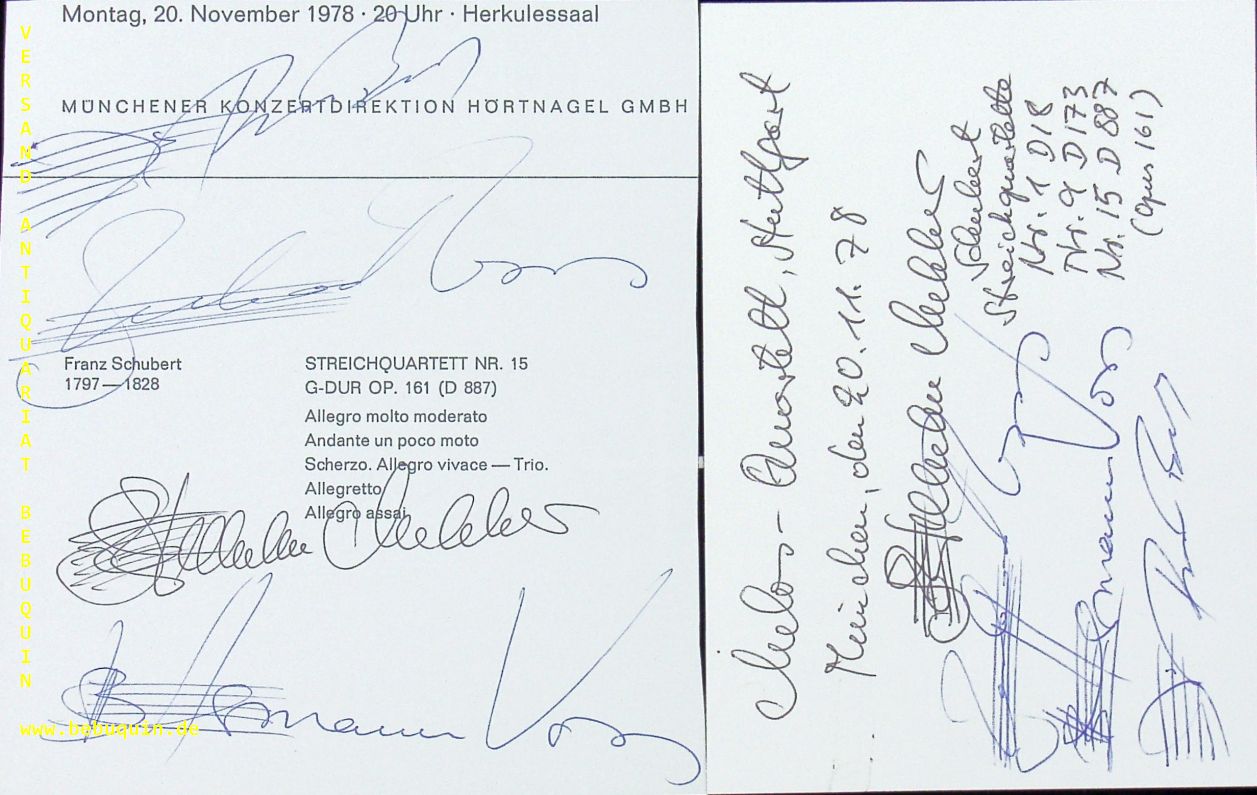 Montag, 20. November 1978 · 20 Uhr · Herkulessaal
MÜNCHENER KONZERTDIREKTION HÖRTNAGEL GMBH
Franz Schubert
1797—1828
STREICHQUARTETT NR. 15
G-DUR OP. 161 (D 887)
Allegro molto moderato
Andante un poco moto
Scherzo. Allegro vivace — Trio.
Allegretto
Allegro assai
Wilhelm Melcher
Hermann Voss
VERSAND ANTIQUARIAT BEBUQUIN
www.bebuquin.de
Melos - Quartett, Stuttgart
München, den 20.11.78
Wilhelm Melcher
Schubert
Streichquartette
Nr. 1 D18
Nr. 9 D173
Nr. 15 D 887
(opus 161)
Gerhard Voss
Hermann Voss
Peter Buck